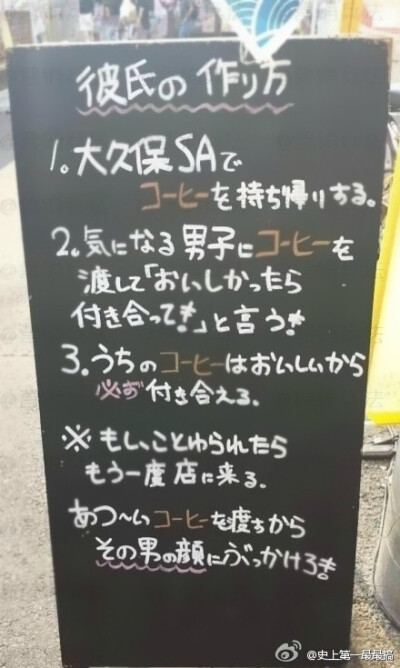 彼氏の作り方
1。大久保SAで
コーヒーを持ち帰りする。
2。気になる男子にコーヒーを
渡して「おいしかったら
付き合って!」と言う!
3.うちのコーヒーはおいしいから
必ず付き合える。
※もしことゆられたら
もう一度店に来る。
あつ〜いコーヒーを渡ちから
その男の顔にぶっかけろ!
@史上第一最最搞